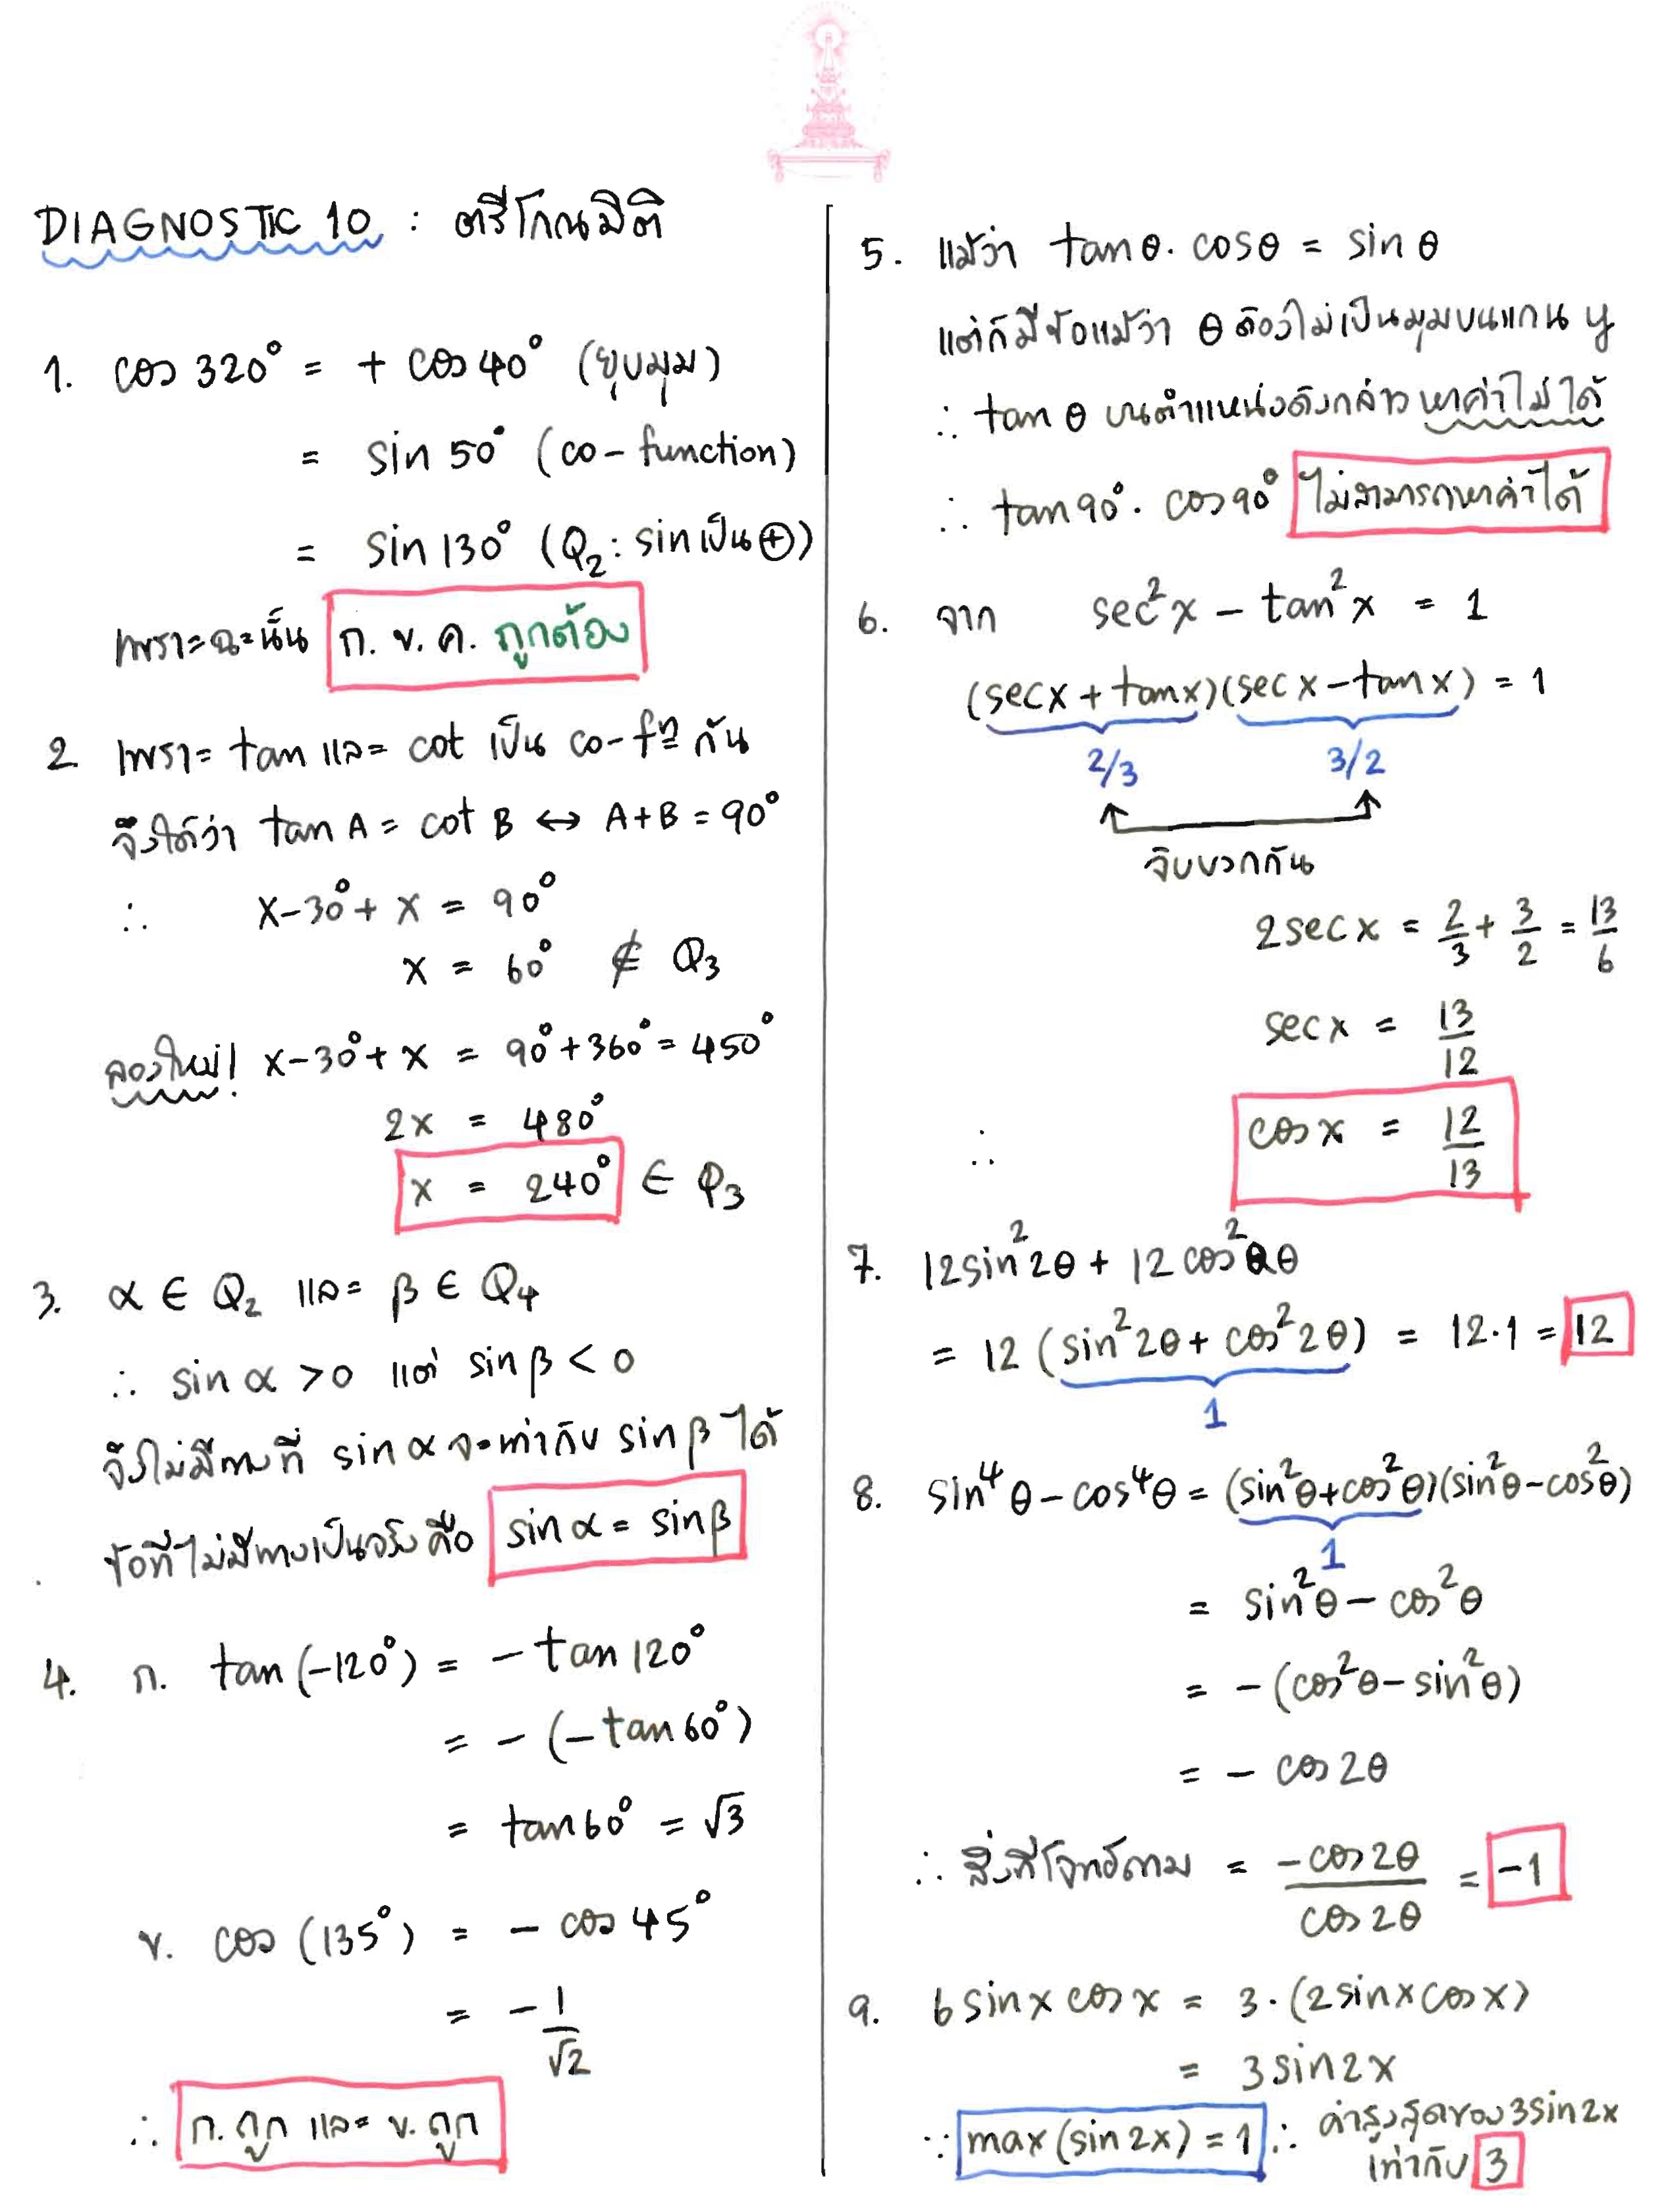 DIAGNOSTIC 10 : ตรีโกณมิติ
1. cos 320° = + cos 40° (ยุบมุม)
= sin 50° (co-function)
= sin 130° (Q₂ : sin เป็น ⊕)
เพราะฉะนั้น ก. ข. ค. ถูกต้อง
2. เพราะ tan และ cot เป็น co-fⁿ กัน
จึงได้ว่า tan A = cot B ↔ A+B = 90°
∴ x-30° + x = 90°
x = 60° ∉ Q₃
ลองใหม่! x-30° + x = 90° + 360° = 450°
2x = 480°
x = 240° ∈ Q₃
3. α ∈ Q₂ และ β ∈ Q₄
∴ sin α > 0 แต่ sin β < 0
จึงไม่มีทางที่ sin α จะเท่ากับ sin β ได้
ข้อที่ไม่มีทางเป็นจริง คือ sin α = sin β
4. ก. tan(-120°) = - tan 120°
= - (-tan 60°)
= tan 60° = √3
ข. cos (135°) = - cos 45°
= - 1/√2
∴ ก. ถูก และ ข. ถูก
5. แม้ว่า tan θ · cos θ = sin θ
แต่ก็มีข้อแม้ว่า θ ต้องไม่เป็นมุมบนแกน y
∴ tan θ บนตำแหน่งดังกล่าว หาค่าไม่ได้
∴ tan 90° · cos 90° ไม่สามารถหาค่าได้
6. จาก sec²x - tan²x = 1
(sec x + tan x)(sec x - tan x) = 1
2/3 3/2
จับบวกกัน
2 sec x = 2/3 + 3/2 = 13/6
sec x = 13/12
∴ cos x = 12/13
7. 12 sin²2θ + 12 cos²2θ
= 12 (sin²2θ + cos²2θ) = 12·1 = 12
1
8. sin⁴θ - cos⁴θ = (sin²θ + cos²θ)(sin²θ - cos²θ)
1
= sin²θ - cos²θ
= - (cos²θ - sin²θ)
= - cos 2θ
∴ สิ่งที่โจทย์ถาม = -cos 2θ/cos 2θ = -1
9. 6 sin x cos x = 3 · (2 sin x cos x)
= 3 sin 2x
∵ max (sin 2x) = 1 ∴ ค่าสูงสุดของ 3 sin 2x
เท่ากับ 3